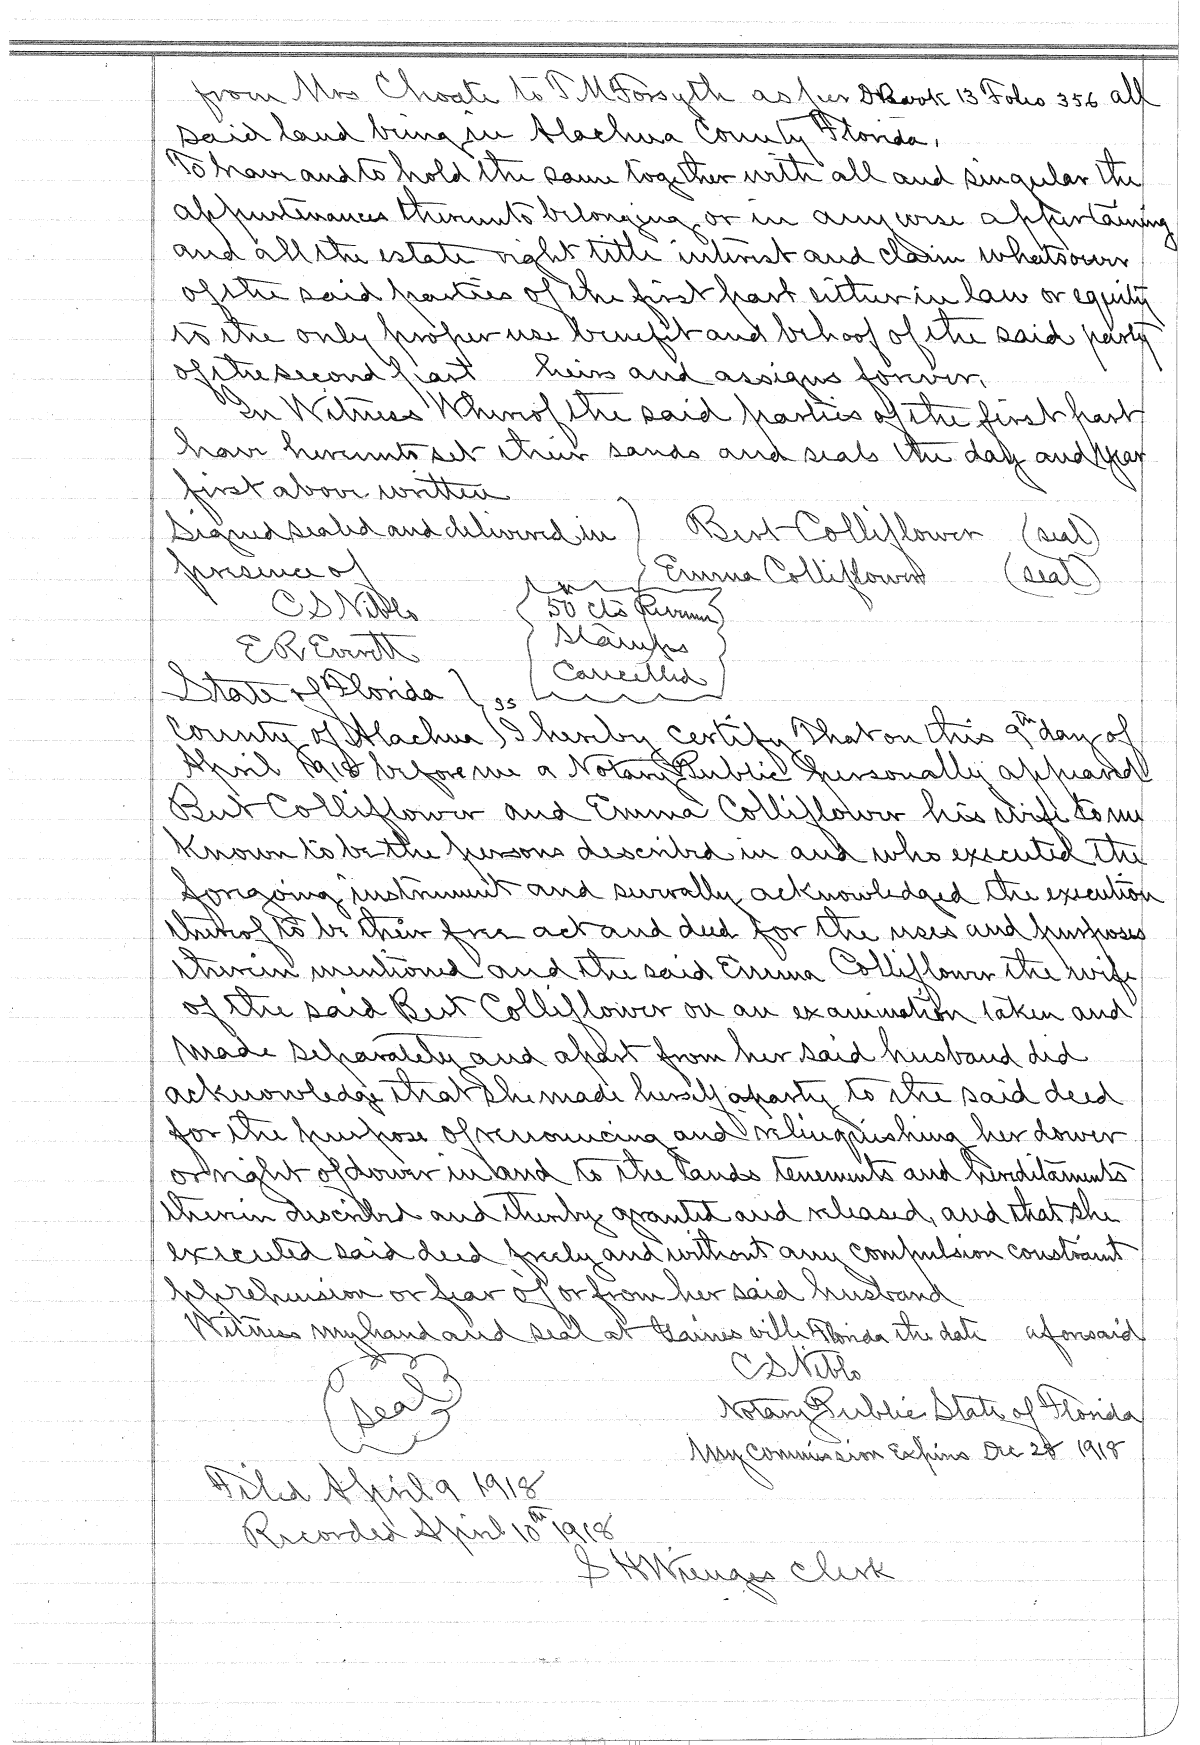 from Mrs Choate to T M Forsyth as per D Book 13 Folio 356 all
said land being in Alachua County Florida.
To have and to hold the same together with all and singular the
appurtenances thereunto belonging or in anywise appertaining
and all the estate right title interest and claim whatsoever
of the said parties of the first part either in law or equity
to the only proper use benefit and behoof of the said party
of the second part heirs and assigns forever.
In Witness Whereof the said parties of the first part
have hereunto set their sands and seals the day and year
first above written
Signed sealed and delivered in Bert Colliflower (seal)
presence of Emma Colliflower (seal)
C S Niblo 50 cts Revenue
E R Everett Stamps
Cancelled
State of Florida } ss
County of Alachua } I hereby certify That on this 9th day of
April 1918 before me a Notary Public personally appeared
Bert Colliflower and Emma Colliflower his wife to me
Known to be the persons described in and who executed the
forgoing instrument and severally acknowledged the execution
thereof to be their free act and deed for the uses and purposes
therein mentioned and the said Emma Colliflower the wife
of the said Bert Colliflower on an examination taken and
made separately and apart from her said husband did
acknowledge that She made herself a party to the said deed
for the purpose of renouncing and relinquishing her dower
or right of dower in and to the lands tenements and hereditaments
therein described and thereby granted and released, and that She
executed said deed freely and without any compulsion constraint
apprehension or fear of or from her said husband
Witness my hand and seal at Gainesville Florida the date aforesaid
C S Niblo
(seal) Notary Public State of Florida
My Commission Expires Dec 28 1918
Filed April 9 1918
Recorded April 10th 1918
S H Wienges Clerk